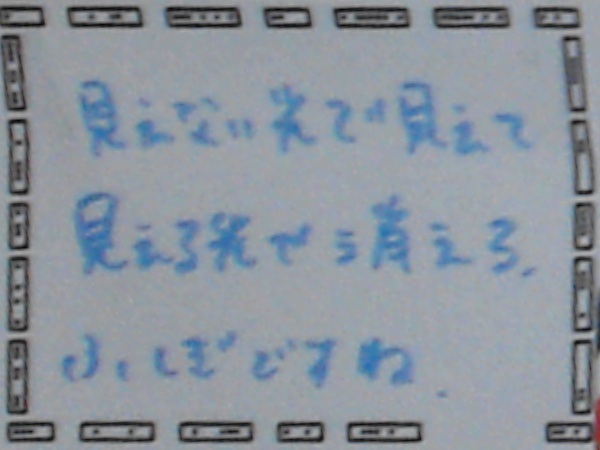 見えない光で見えて
見える光で消える.
ふしぎですね.